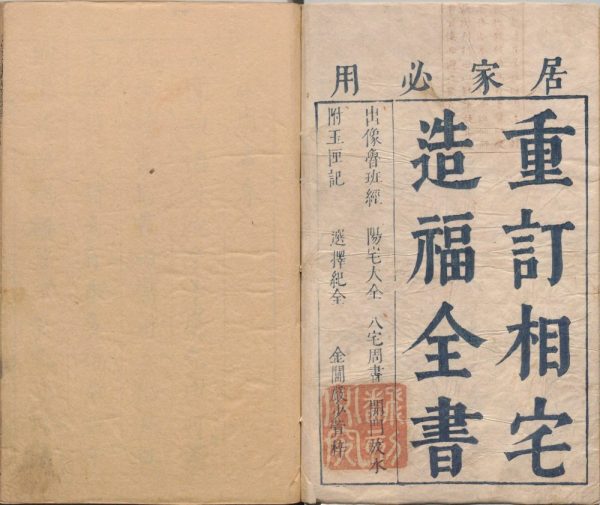 居家必用
重訂相宅
造福全書
出像魯班經 陽宅大全 八宅周書 開門放水
附玉匣記 選擇紀全 金閶